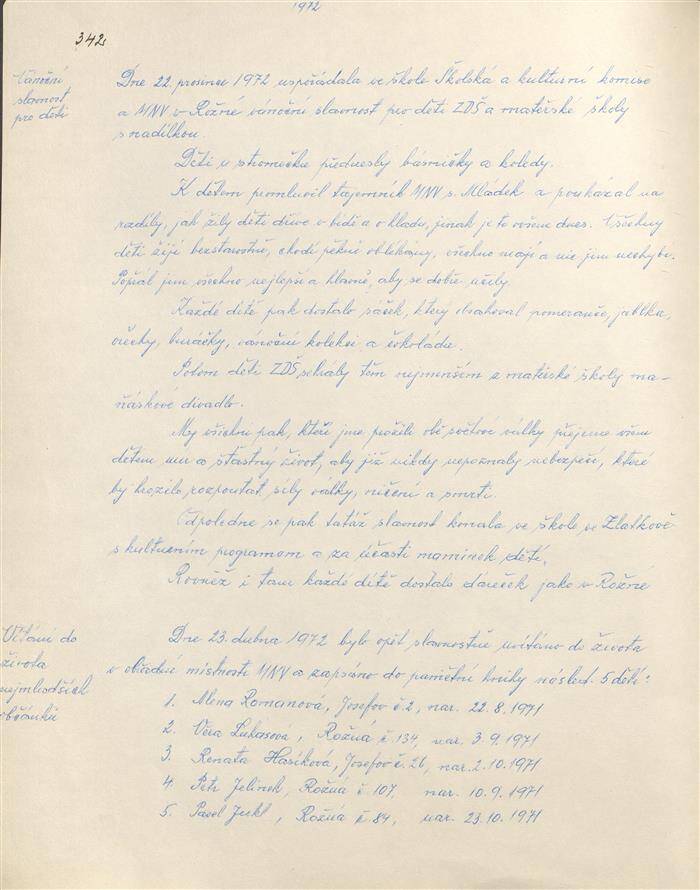 1972
342
Vánoční
slavnost
pro děti
Dne 22. prosince 1972 uspořádala ve škole Školská a kulturní komise
a MNV v Rožné vánoční slavnost pro děti ZDŠ a mateřské školy
s nadílkou.
Děti u stromečku přednesly básničky a koledy.
K dětem promluvil tajemník MNV s. Mládek a poukázal na
rozdíly, jak žily děti dříve v bídě a o hladu, jinak je to ovšem dnes. Všechny
děti žijí bezstarostně, chodí pěkně oblékány, všechno mají a nic jim nechybí.
Popřál jim všechno nejlepší a hlavně, aby se dobře učily.
Každé dítě pak dostalo sáček, který obsahoval pomeranče, jablka,
ořechy, buráčky, vánoční kolekci a čokoládu.
Potom děti ZDŠ sehrály těm nejmenším z mateřské školy ma-
ňáskové divadlo.
My všichni pak, kteří jsme prožili obě světové války přejeme všem
dětem mír a šťastný život, aby již nikdy nepoznaly nebezpečí, které
by hrozilo rozpoutat síly války, ničení a smrti.
Odpoledne se pak tatáž slavnost konala ve škole ve Zlatkově
s kulturním programem a za účasti maminek dětí.
Rovněž i tam každé dítě dostalo dáreček jako v Rožné
Vítání do
života
nejmladších
občánků
Dne 23. dubna 1972 bylo opět slavnostně uvítáno do života
v obřadní místnosti MNV a zapsáno do pamětní knihy násled. 5 dětí:
1. Alena Romanová, Josefov č. 2, nar. 22.8.1971
2. Věra Lukásová, Rožná č. 134, nar. 3.9.1971
3. Renata Hasíková, Josefov č. 26, nar. 2.10.1971
4. Petr Jelínek, Rožná č. 107, nar. 10.9.1971
5. Pavel Jukl, Rožná č. 84, nar. 23.10.1971